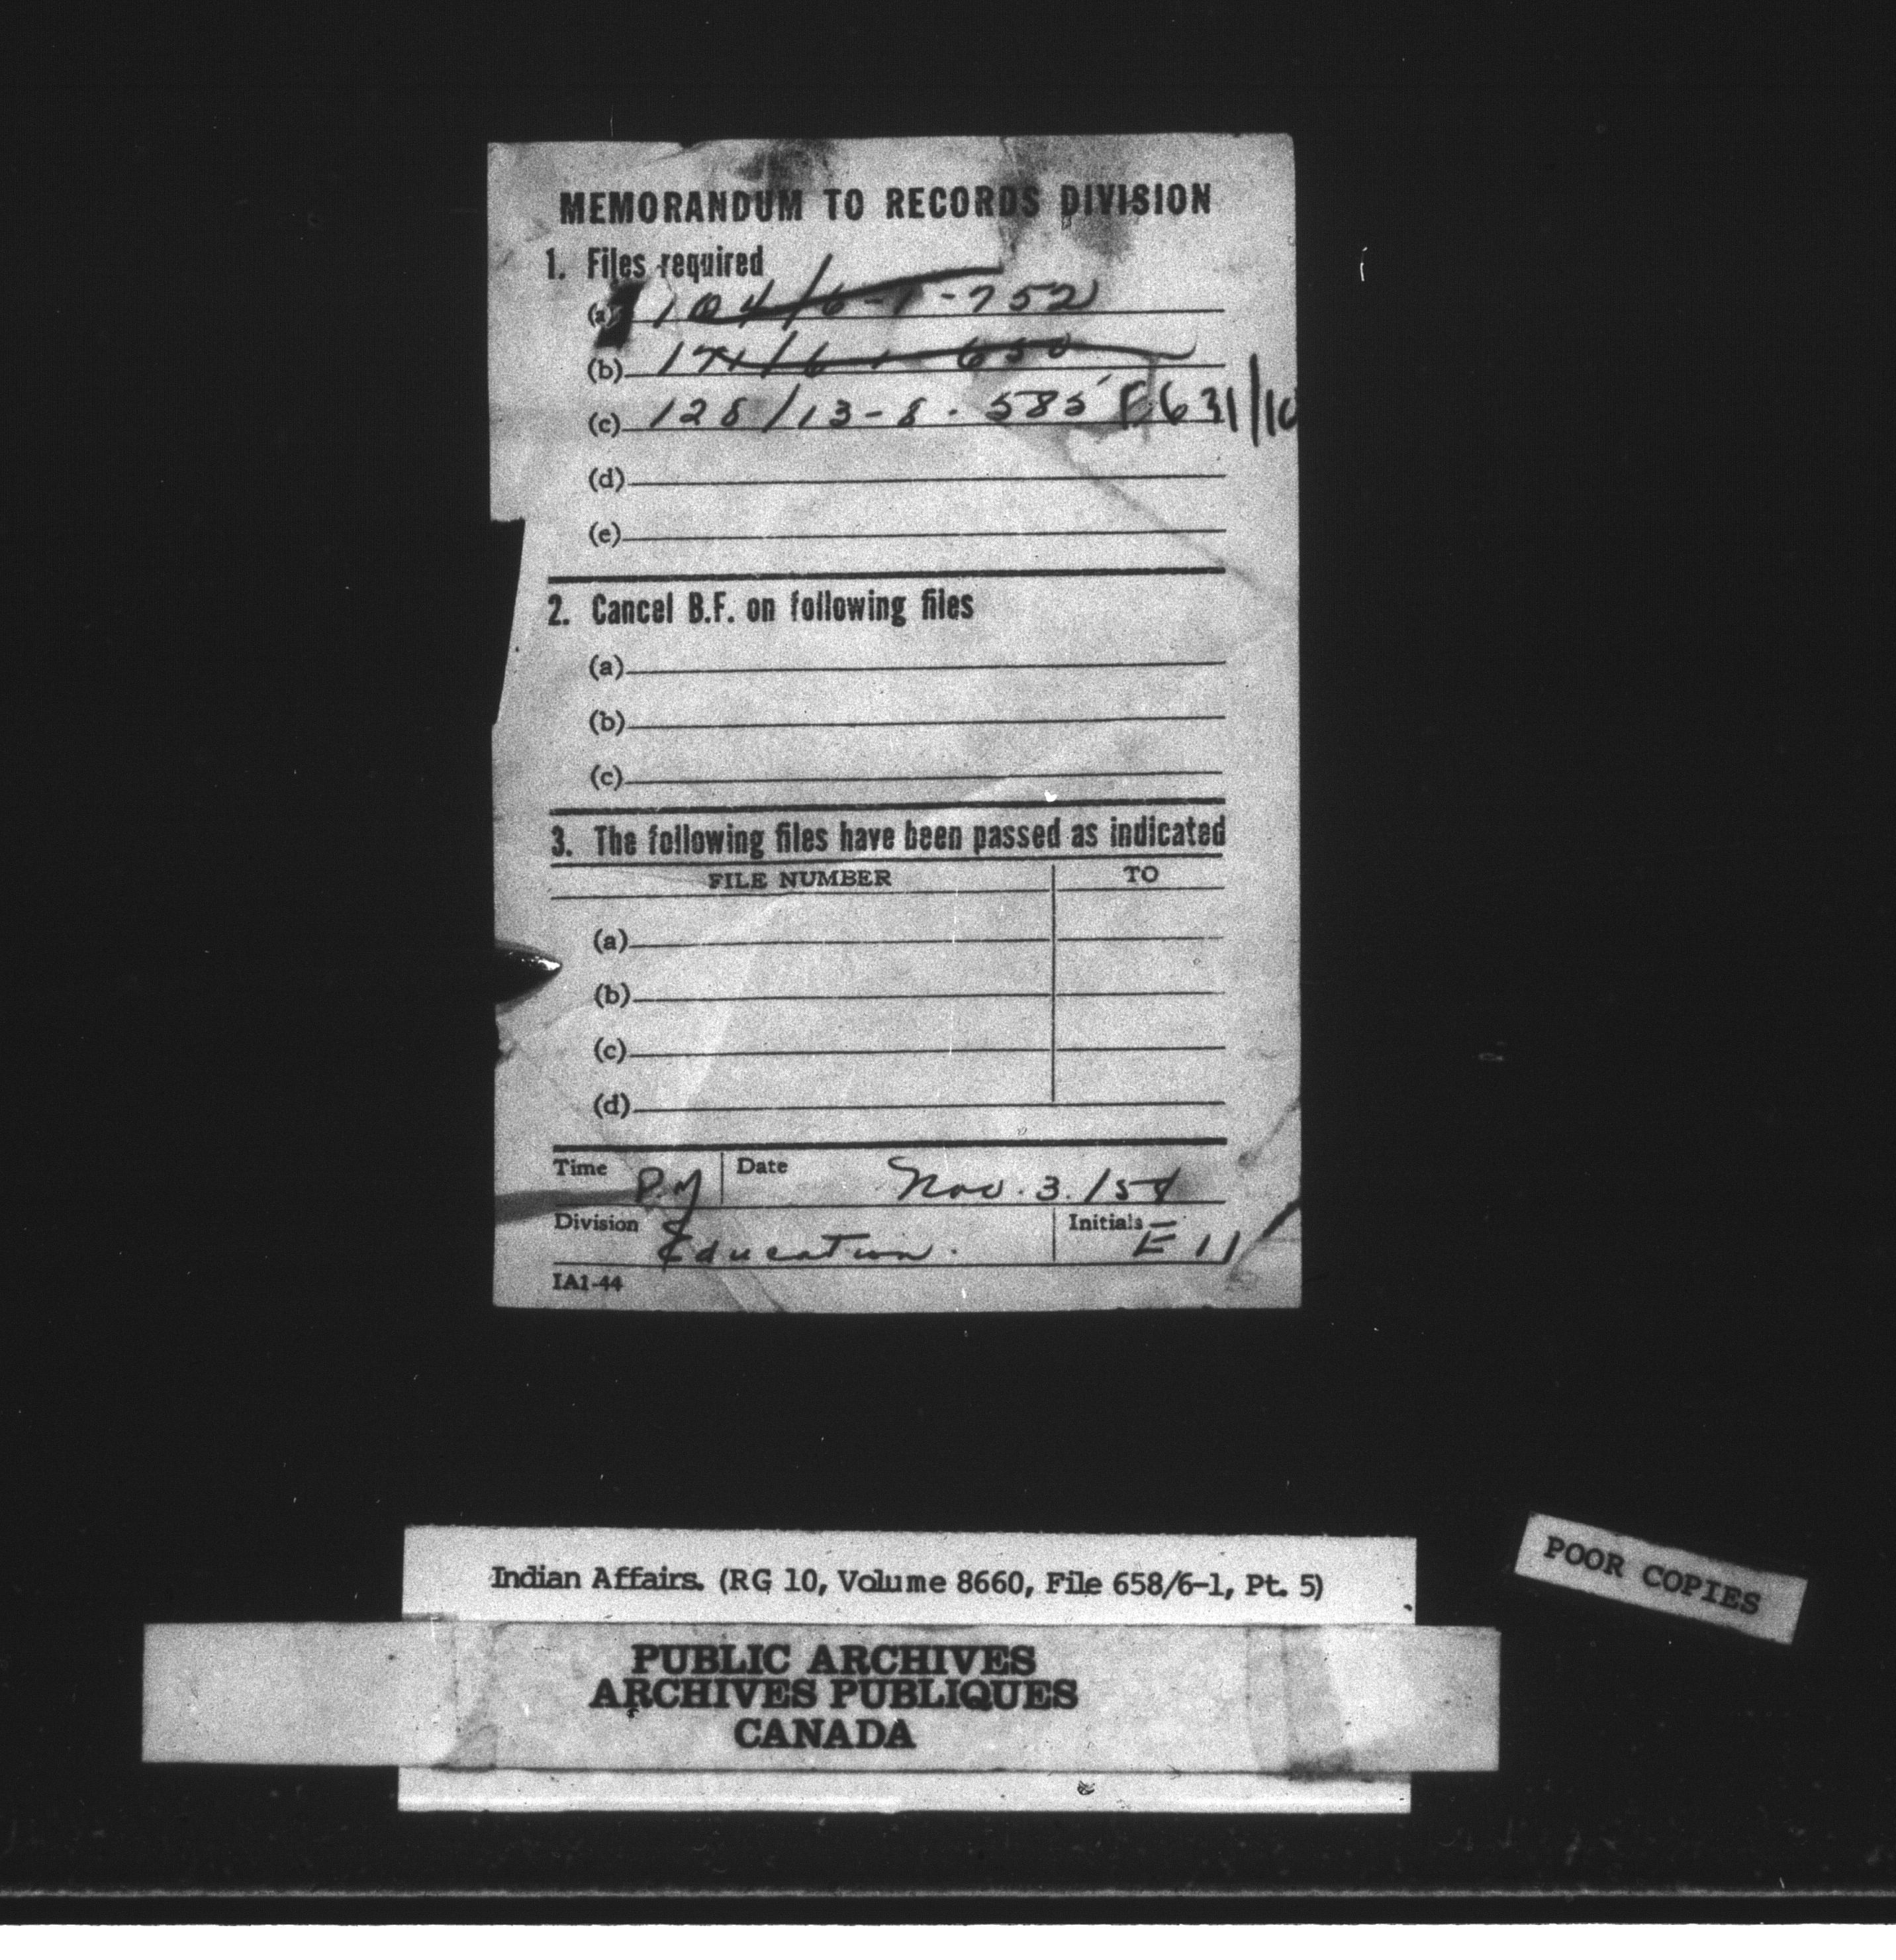 MEMORANDUM TO RECORDS DIVISION
1. Files required
(a) 104/6-1-752
(b) 171/6-1-650
(c) 128/13-8-585 F631/10
(d)
(e)
2. Cancel B.F. on following files
(a)
(b)
(c)
3. The following files have been passed as indicated
FILE NUMBER TO
(a)
(b)
(c)
(d)
Time P.M Date Nov. 3./54
Division Education. Initials
IA1-44
Indian Affairs. (RG 10, Volume 8660, File 658/6-1, Pt. 5)
POOR COPIES
PUBLIC ARCHIVES
ARCHIVES PUBLIQUES
CANADA